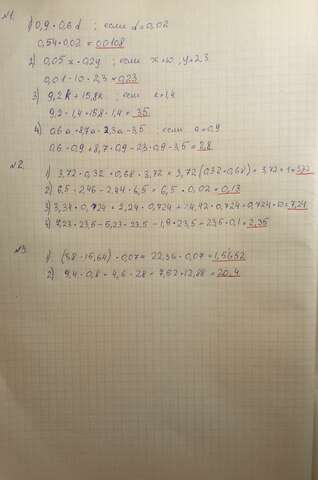 №1.
1) 0,9 · 0,6 d ; если d = 0,02
0,54 · 0,02 = 0,0108
2) 0,05 x · 0,2y ; если x = 10, y = 2,3
0,01 · 10 · 2,3 = 0,23
3) 9,2k + 15,8k ; если k = 1,4
9,2 · 1,4 + 15,8 · 1,4 = 35
4) 0,6a + 8,7a - 2,3a - 3,5 ; если a = 0,9
0,6 · 0,9 + 8,7 · 0,9 - 2,3 · 0,9 - 3,5 = 2,8
№2.
1) 3,72 · 0,32 + 0,68 · 3,72 = 3,72 (0,32 + 0,68) = 3,72 · 1 = 3,72
2) 6,5 · 2,46 - 2,44 · 6,5 = 6,5 · 0,02 = 0,13
3) 3,34 · 0,724 + 2,24 · 0,724 + 4,42 · 0,724 = 0,724 · 10 = 7,24
4) 7,23 · 23,5 - 5,23 · 23,5 - 1,9 · 23,5 = 23,5 · 0,1 = 2,35
№3.
1) (38 - 15,64) · 0,07 = 22,36 · 0,07 = 1,5652
2) 9,4 · 0,8 + 4,6 · 2,8 = 7,52 + 12,88 = 20,4